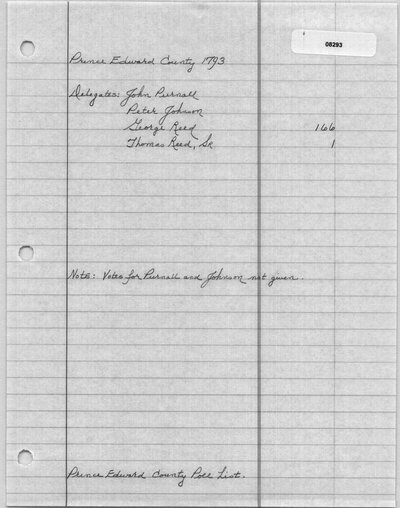 08293
Prince Edward County 1793
Delegates: John Purnall
Peter Johnson
George Reed 166
Thomas Reed, Sr 1
Note: Votes for Purnall and Johnson not given.
Prince Edward County Poll List.